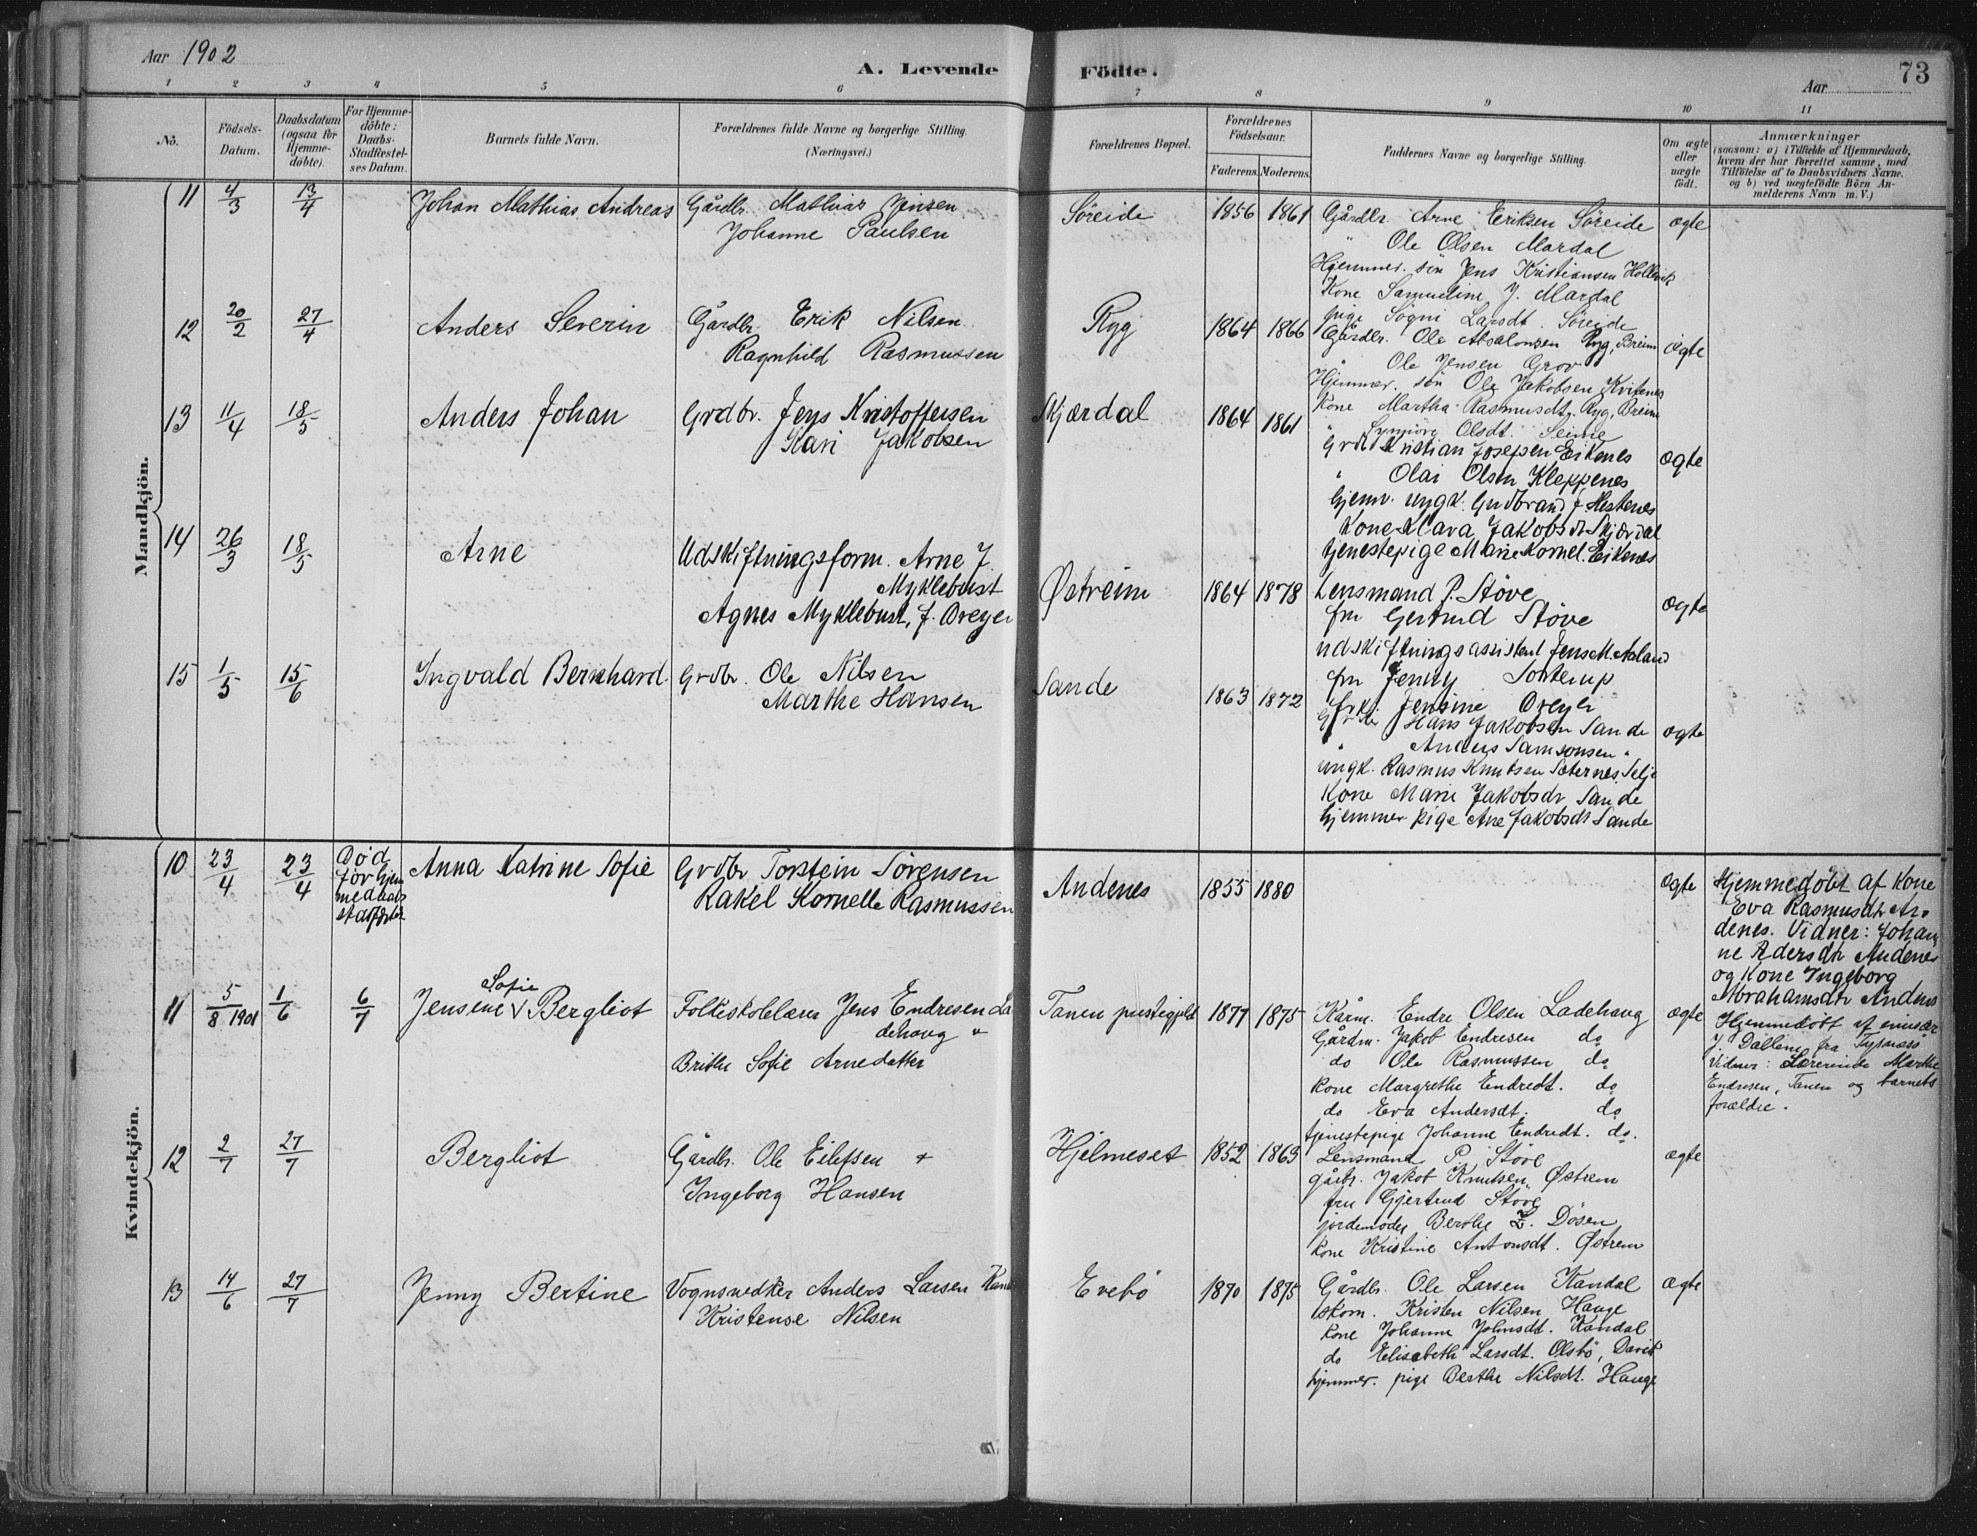 Aar 1902
A. Levende Födte.
Aar 73
1 2 3 4 5 6 7 8 9 10 11
No.
Födsels-Datum.
Daabsdatum (ogsaa for Hjemme-döbte).
For Hjemme-döbte: Daabs-Stadfæstel-ses Datum.
Barnets fulde Navn.
Forældrenes fulde Navne og borgerlige Stilling. (Næringsvei.)
Forældrenes Bopæl.
Forældrenes Födselsaar.
Faderens. Moderens.
Faddernes Navne og borgerlige Stilling.
Om ægte eller uægte födt.
Anmærkninger
(saasom: a) i Tilfælde af Hjemmedaab, hvem der har forrettet samme, med Tilföielse af to Daabsvidners Navne. og b) ved uægtefödte Börn An-melderens Navn m. V.)
Mandkjön.
11 4/3 13/4 Johan Mathias Andreas Gårdbr. Mathias Jensen Søreide 1856 1861 Gårdbr. Arne Eriksen Søreide ægte
Johanne Paulsen
" Ole Olsen Mardal
Hjemmev. søn Jens Kristiansen Hollevik
Kone Samueline J. Mardal
pige Søgni Larsdt. Søreide
12 20/2 27/4 Anders Severin Gårdbr. Erik Nilsen Ryg 1864 1866 Gårdbr. Ole Absalonsen Ryg, Breim ægte
Ragnhild Rasmussen
" Ole Jensen Grov
Hjemmev. søn Ole Jakobsen Kvitenes
Kone Martha Rasmusdt. Ryg, Breim
" Olsdt. Seime
13 11/4 18/5 Anders Johan Grdbr. Jens Kristoffersen Skjærdal 1864 1861
Kari Jakobsen
Grdbr Kristian Josepsen Eikenes ægte
" Olai Olsen Kleppenes
hjemv. ungk. Gudbrand J. Hestenes
Kone Klara Jakobsdt Skjærdal
tjenestepige Marie Kornel. Eikenes
14 26/3 18/5 Arne Udskiftningsform. Arne J. Myklebust
Agnes Myklebust, f. Dreyer
Østreim 1864 1878 Lensmand P. Støve ægte
fru Gertrud Støve
udskiftningsassistent Jens M. Aaland
fru Jenny
frk. Jensine Dreyer
15 1/5 15/6 Ingvald Bernhard Grdbr. Ole Nilsen Sande 1863 1872
Marthe Hansen
Grdbr Hans Jakobsen Sande ægte
" Anders Samsonsen "
ungk. Rasmus Knutsen Sæternes, Selje
Kone Marie Jakobsdt Sande
hjemmev pige Ane Jakobsdt Sande
Kvindekjön.
10 23/4 23/4 Død før hjemmedaabs stadfæst Anna Katrine Sofie Grdbr Torstein Sørensen
Rakel Kornelie Rasmussen
Andenes 1855 1880 ægte
Hjemmedøbt af Kone
Eva Rasmusdt An-
denes. Vidner: Johan-
ne Pedersdt Andenes
og Kone Ingeborg
Abrahamsdt Andenes
11 5/8 1901 1/6 6/7 Jensine Sofie Bergliot Folkeskolelærer Jens Endresen La-
dehaug +
Brithe Sofie Arnedatter
Tanen prestegjeld 1877 1875 Kårm. Endre Olsen Ladehaug ægte
Gårdm. Jakob Endresen do
do Ole Rasmussen do
Kone Margrethe Endredt. do
do Eva Andersdt. do
tjenestepige Johanne Endredt. do.
Hjemmedøbt af emissær
J. Dallene fra Tysnæs
Vidner: Lærerinde Marthe
Endresen, Tanen og barnets
forældre.
12 2/7 27/7 Bergliot Gårdbr. Ole Eilefsen +
Ingeborg Hansen
Hjelmeset 1852 1863 Lensmand P. Støve ægte
gårbr. Jakob Knutsen Østrem
fru Gjertrud Støve
jordemoder Berthe L. Døsen
kone Kristine Antonsdt. Østrem
13 14/6 27/7 Jenny Bertine Vognsvedker Anders Larsen Kandal
Kristense Nilsen
Evebö 1870 1875 Gårdbr. Ole Larsen Kandal ægte
skom. Kristen Nilsen Hauge
kone Johanne Johnsdt. Kandal
do Elisabeth Larsdt. Olsbö, Davik
hjemmev. pige Berthe Nilsdt. Hauge